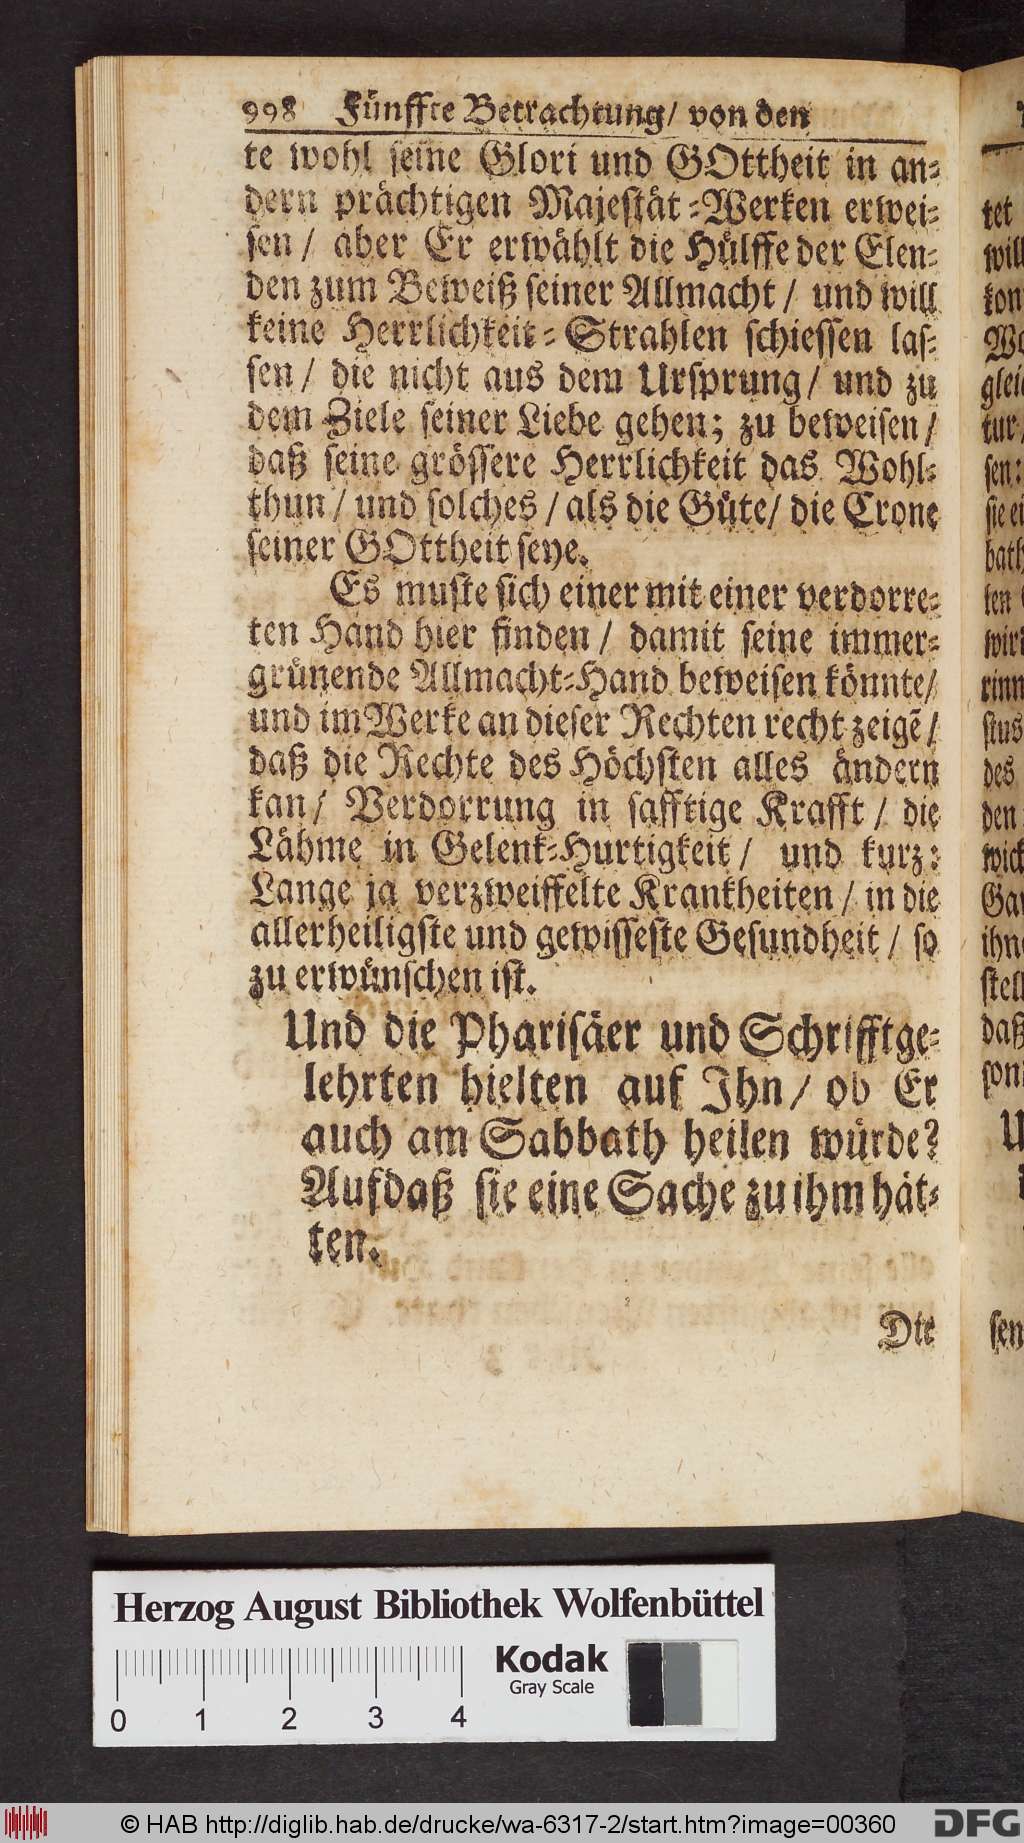 998 Fünffte Betrachtung/ von den
te wohl seine Glori und GOttheit in an=
dern prächtigen Majestät=Werken erwei=
sen / aber Er erwählt die Hülffe der Elen=
den zum Beweiß seiner Allmacht / und will
keine Herrlichkeit=Strahlen schiessen las=
sen / die nicht aus dem Ursprung / und zu
dem Ziele seiner Liebe gehen; zu beweisen /
daß seine grössere Herrlichkeit das Wohl=
thun / und solches / als die Güte/ die Crone
seiner GOttheit seye.
Es muste sich einer mit einer verdorre=
ten Hand hier finden / damit seine immer=
grünende Allmacht=Hand beweisen könnte/
und im Werke an dieser Rechten recht zeigẽ /
daß die Rechte des Höchsten alles ändern
kan / Verdorrung in safftige Krafft / die
Lähme in Gelenk=Hurtigkeit / und kurz:
Lange ja verzweiffelte Krankheiten / in die
allerheiligste und gewisseste Gesundheit / so
zu erwünschen ist.
Und die Pharisäer und Schrifftge=
lehrten hielten auf Ihn / ob Er
auch am Sabbath heilen würde?
Aufdaß sie eine Sache zu ihm hät=
ten.
Die
tet
will
kon
We
glei
tur
sen:
sie ei
bath
ten
wir
rinn
stus
des
den
wick
Gar
ihn
stell
daß
son
U
sen
Herzog August Bibliothek Wolfenbüttel
Kodak
Gray Scale
0 1 2 3 4
© HAB http://diglib.hab.de/drucke/wa-6317-2/start.htm?image=00360
DFG